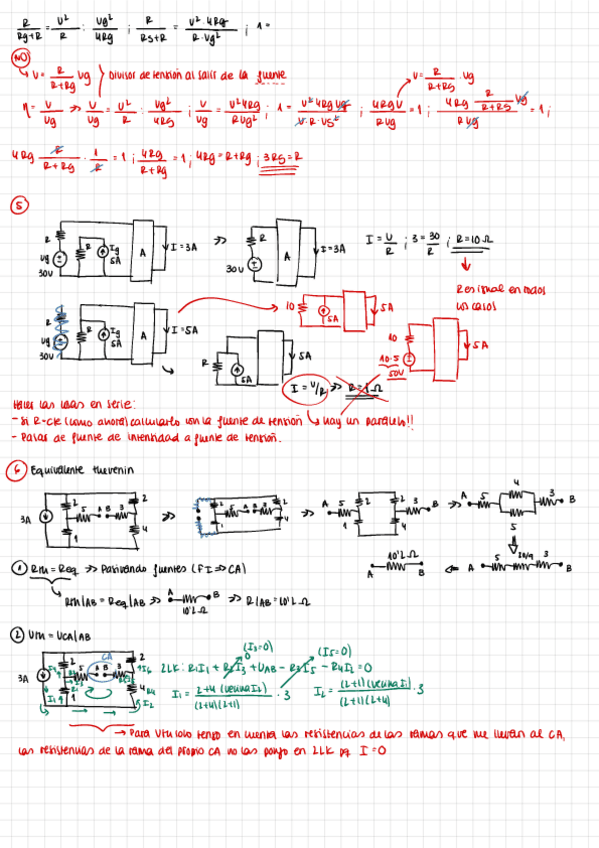 R/(Rg+R) = U²/R : Ug²/4Rg ; R/(RS+R) = U²·4Rg/(R·Ug²) ; 1 =
NO
U = R/(R+Rg) Ug } Divisor de tensión al salir de la fuente
U = R/(R+RS) · Ug
η = U/Ug >> U/Ug = U²/R : Ug²/4RS ; U/Ug = U²4Rg/RUg² ; 1 = U²4RgUg/(U·R·US²) ; 4RgU/RUg = 1 ; 4Rg R/(R+RS) Ug / RUg = 1 ;
4Rg R/(R+Rg) · 1/R = 1 ; 4Rg/(R+Rg) = 1 ; 4Rg = R+Rg ; 3RS = R
5
R Ug 30V R Ig 5A A I=3A >> R 30V A I=3A I = U/R ; 3 = 30/R ; R=10Ω
Res igual en todos
los casos
R Ug 30V R Ig 5A A I=5A 10 5A 5A
R 5A 5A 10 10·5 50V 5A
I = U/R >> R=1Ω
Haces las ideas en serie:
- Si R=cte (como ahora) calcularlo con la fuente de tensión hay un paralelo!!
- Pasas de fuente de intensidad a fuente de tensión.
6 Equivalente thevenin
3A 2 5 A B 3 2 1 4 >> 2 5 A B 3 2 1 4 >> A 5 2 2 3 B 1 4 >> A 5 4 3 B 5
A 10'2Ω B <= A 5 20/9 3 B
1 RTh = Req >> Pasivando fuentes (FI => CA)
RTh|AB = Req|AB >> A 10'2Ω B >> R|AB = 10'2Ω
2 UTh = UCA|AB
(I3=0) (I5=0)
3A 2 5 CA A B 3 2 1 4 R4 I1 I2 2LK: R1I1 + R3I3 + UAB - R5I5 - R4I2 = 0
I1 = 2+4 (vecina I2)/((2+4)(2+1)) · 3 I2 = (2+1)(vecina I1)/((2+1)(2+4)) · 3
Para UTh solo tengo en cuenta las resistencias de las ramas que me llevan al CA,
las resistencias de la rama del propio CA no las pongo en 2LK pq I=0